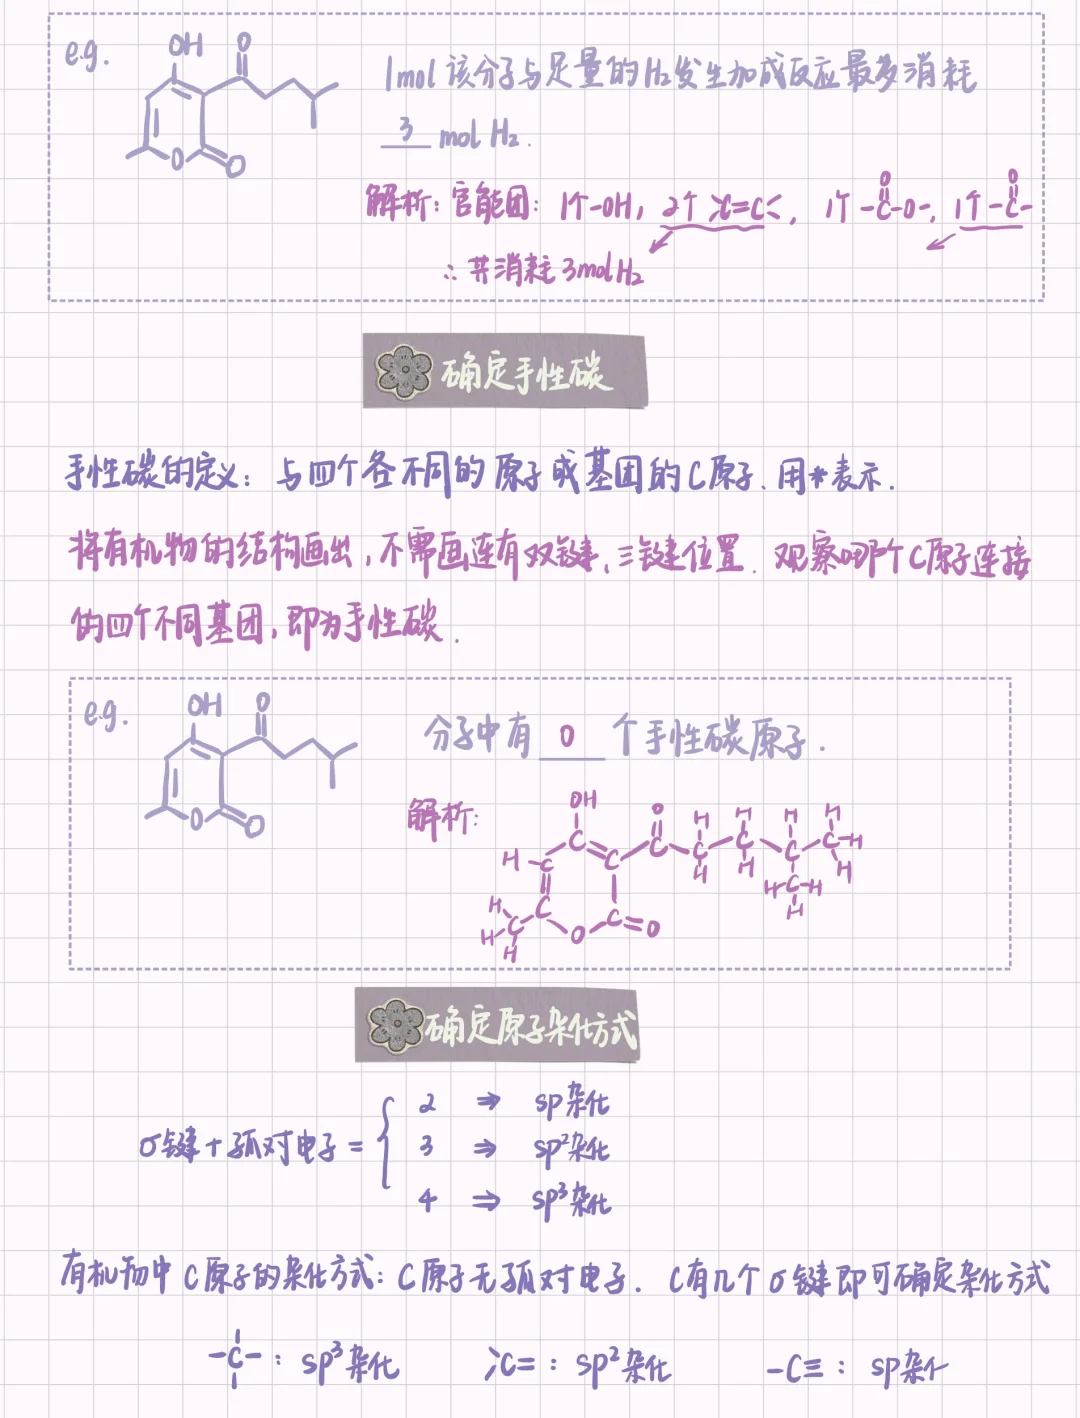 e.g.
OH O
O O
1mol该分子与足量的H₂发生加成反应最多消耗
3 mol H₂.
解析: 官能团: 1个-OH, 2个 >C=C<, 1个 -C(=O)-O-, 1个 -C(=O)-
∴ 共消耗3molH₂
确定手性碳
手性碳的定义: 与四个各不同的原子或基团的C原子. 用*表示.
将有机物的结构画出, 不需画连有双键、三键位置. 观察哪个C原子连接
的四个不同基团, 即为手性碳.
e.g.
OH O
O O
分子中有 0 个手性碳原子.
解析:
OH O H H H H
H C C C C C C C H
H C C H H C H H
H C C O H
H O
H
确定原子杂化方式
2 ⇒ sp杂化
σ键+孤对电子= 3 ⇒ sp²杂化
4 ⇒ sp³杂化
有机物中C原子的杂化方式: C原子无孤对电子. C有几个σ键即可确定杂化方式
-C- : sp³杂化 >C= : sp²杂化 -C≡ : sp杂化